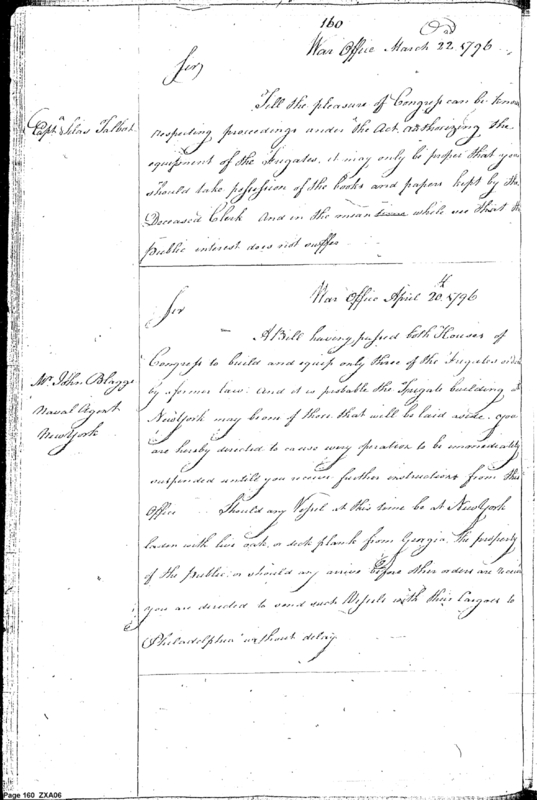 160
War Office March 22 1796
Sir,
Capt.n Silas Talbot
Till the pleasure of Congress can be know
respecting proceedings under the Act authorizing the
equipment of the Frigates, it may only be proper that you
should take possession of the books and papers kept by the
Deceased Clerk And in the mean while see that the
public interest does not suffer
War Office April 20. 1796
Sir
A Bill having passed both Houses of
Congress to build and equip only three of the Frigates
by a former law. And it is probable the Frigate building
Mr. John Blagge
Naval Agent
New York
New York may be one of those that will be laid aside. you
are hereby directed to cause every operation to be immediately
suspended untill you receive further instructions from this
Office Should any Vessel at this time be at New York
laden with live oak, or deck plank from Georgia the property
of the public, or should any arrive before other orders are
you are directed to send such Vessels with their Cargoes to
Philadelphia without delay
Page 160 ZXA06